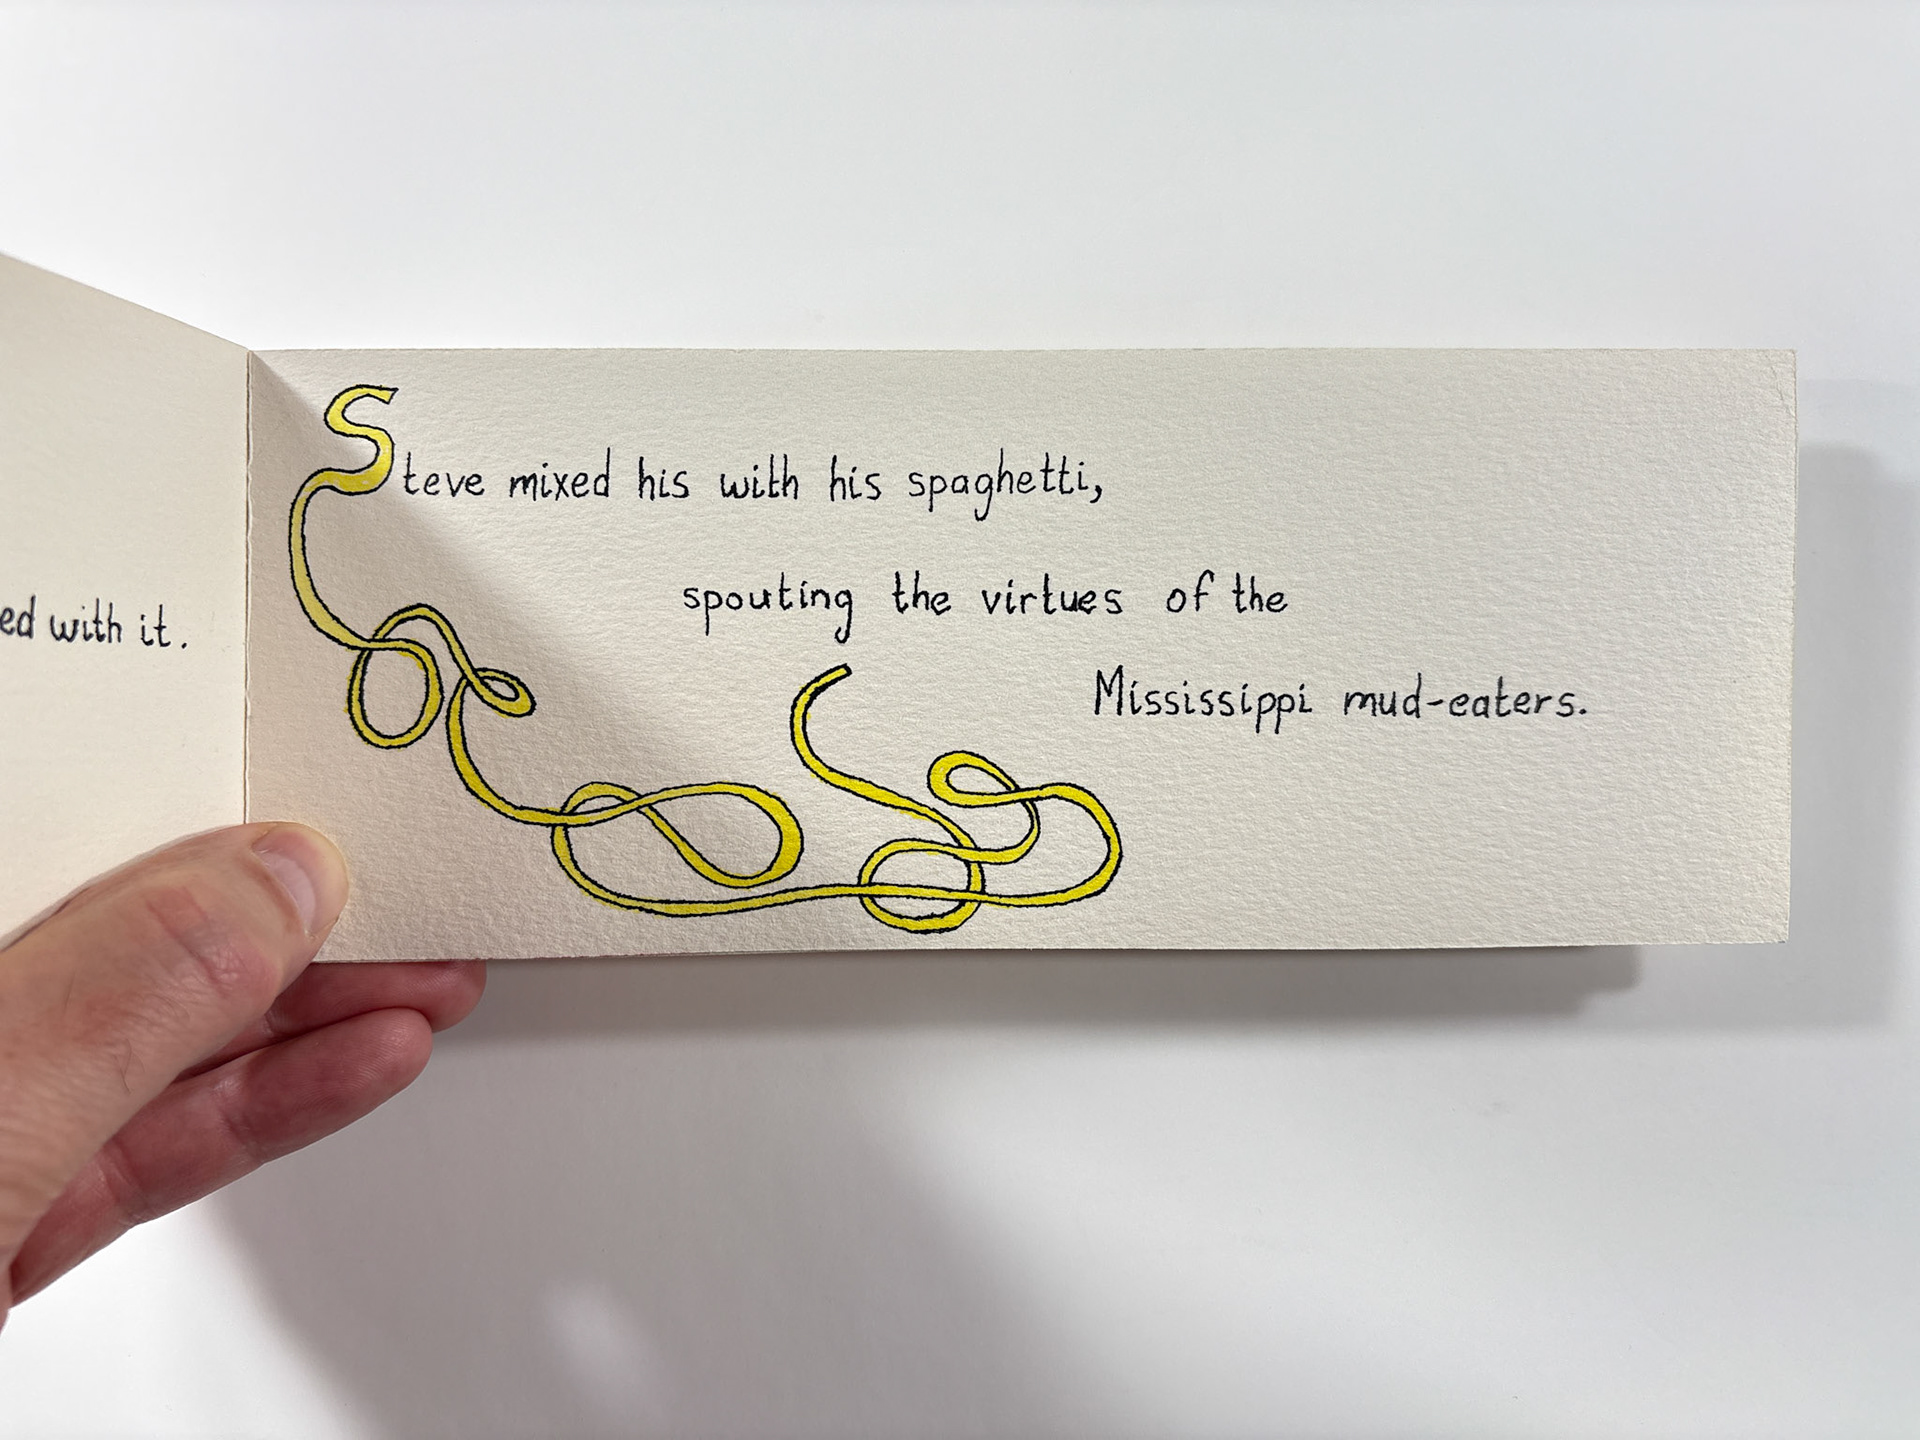 ed with it.
Steve mixed his with his spaghetti,
spouting the virtues of the
Mississippi mud-eaters.